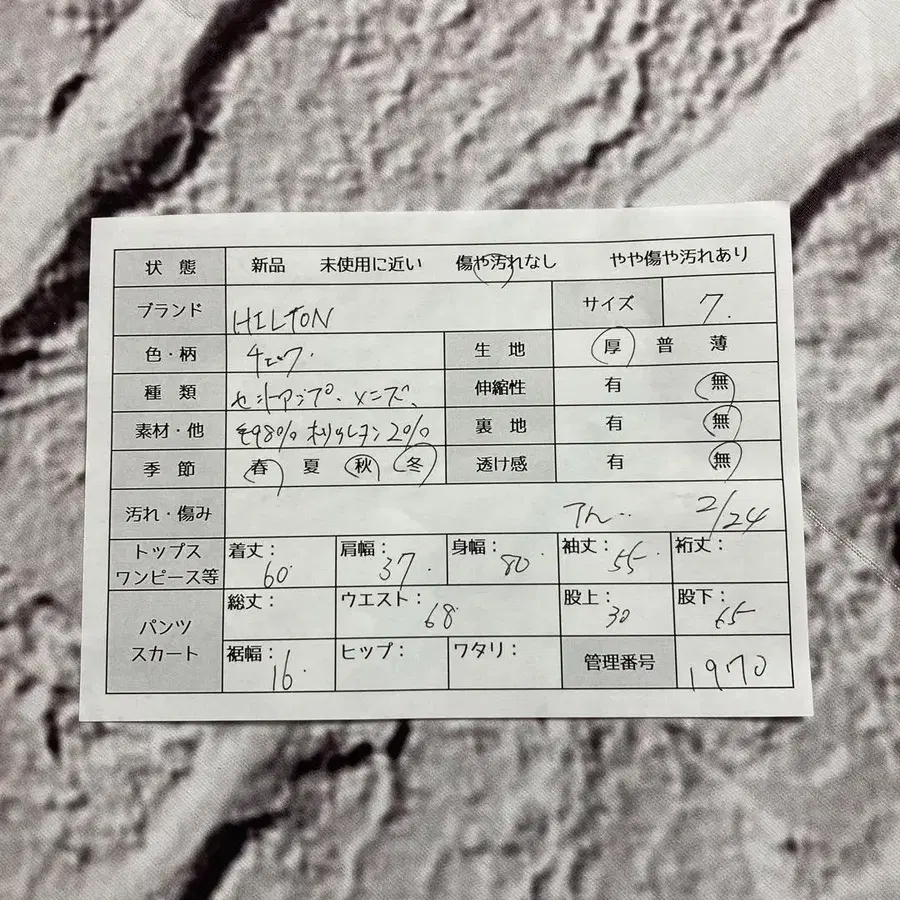 状態 新品 未使用に近い 傷や汚れなし やや傷や汚れあり
ブランド HILTON サイズ 7.
色・柄 チェック. 生地 厚 普 薄
種類 セットアップ. メンズ、 伸縮性 有 無
素材・他 毛98% ポリウレタン2% 裏地 有 無
季節 春 夏 秋 冬 透け感 有 無
汚れ・傷み 2/24
トップス ワンピース等 着丈: 60 肩幅: 37. 身幅: 80 袖丈: 55. 裄丈:
パンツ スカート 総丈: ウエスト: 68 股上: 30 股下: 65
裾幅: 16. ヒップ: ワタリ: 管理番号 1970